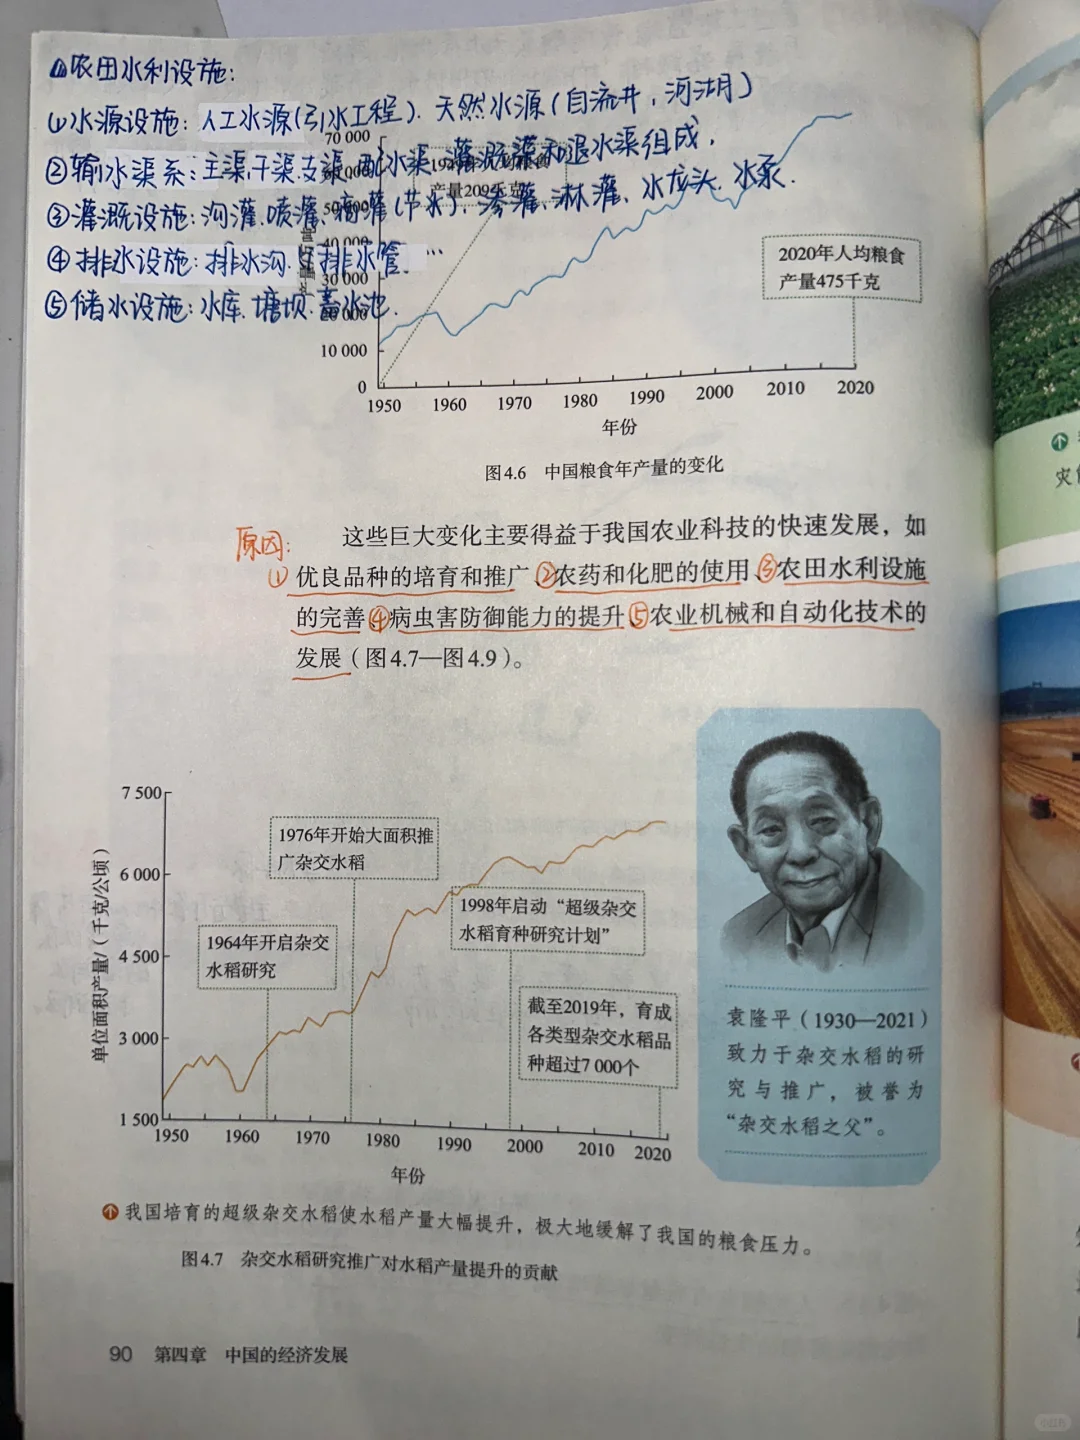 农田水利设施:
(1)水源设施:人工水源(引水工程)、天然水源(自流井,河湖)
②输水渠系:主渠、干渠、支渠、配水渠、灌溉渠和退水渠组成,
③灌溉设施:沟灌、喷灌、滴灌(节水)、渗灌、淋灌、水龙头、水泵.
④排水设施:排水沟、排水管…
⑤储水设施:水库、塘坝、蓄水池.
70 000
产量209千克
30 000
10 000
0
2020年人均粮食
产量475千克
1950 1960 1970 1980 1990 2000 2010 2020
年份
图4.6 中国粮食年产量的变化
原因:
这些巨大变化主要得益于我国农业科技的快速发展,如
①优良品种的培育和推广②农药和化肥的使用、③农田水利设施
的完善④病虫害防御能力的提升⑤农业机械和自动化技术的
发展(图4.7—图4.9)。
单位面积产量/(千克/公顷)
7 500
6 000
4 500
3 000
1 500
1976年开始大面积推
广杂交水稻
1964年开启杂交
水稻研究
1998年启动“超级杂交
水稻育种研究计划”
截至2019年,育成
各类型杂交水稻品
种超过7 000个
1950 1960 1970 1980 1990 2000 2010 2020
年份
袁隆平(1930—2021)
致力于杂交水稻的研
究与推广,被誉为
“杂交水稻之父”。
我国培育的超级杂交水稻使水稻产量大幅提升,极大地缓解了我国的粮食压力。
图4.7 杂交水稻研究推广对水稻产量提升的贡献
90 第四章 中国的经济发展
小红书